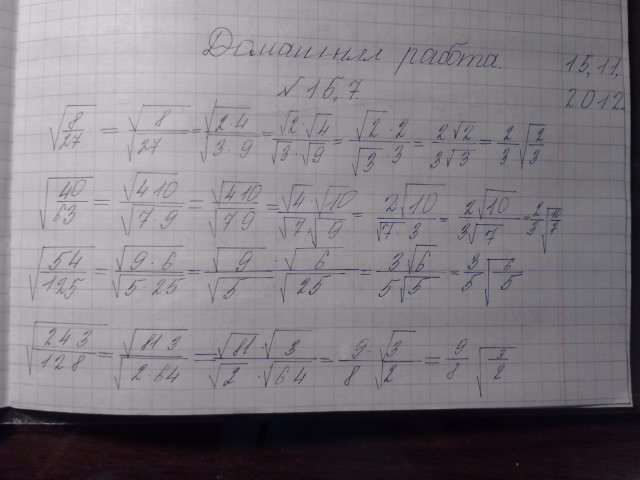 Домашняя работа 15.11.
№ 16,7. 2012
√(8/27) = √8/√27 = √(2·4)/√(3·9) = √2·√4/√3·√9 = √2·2/√3·3 = 2√2/3√3 = 2/3 √(2/3)
√(40/63) = √(4·10)/√(7·9) = √(4·10)/√(7·9) = √4·√10/√7·√9 = 2√10/√7·3 = 2√10/3√7 = 2/3 √(10/7)
√(54/125) = √(9·6)/√(5·25) = √9·√6/√5·√25 = 3√6/5√5 = 3/5 √(6/5)
√(243/128) = √(81·3)/√(2·64) = √81·√3/√2·√64 = 9·√3/8√2 = 9/8 √(3/2)